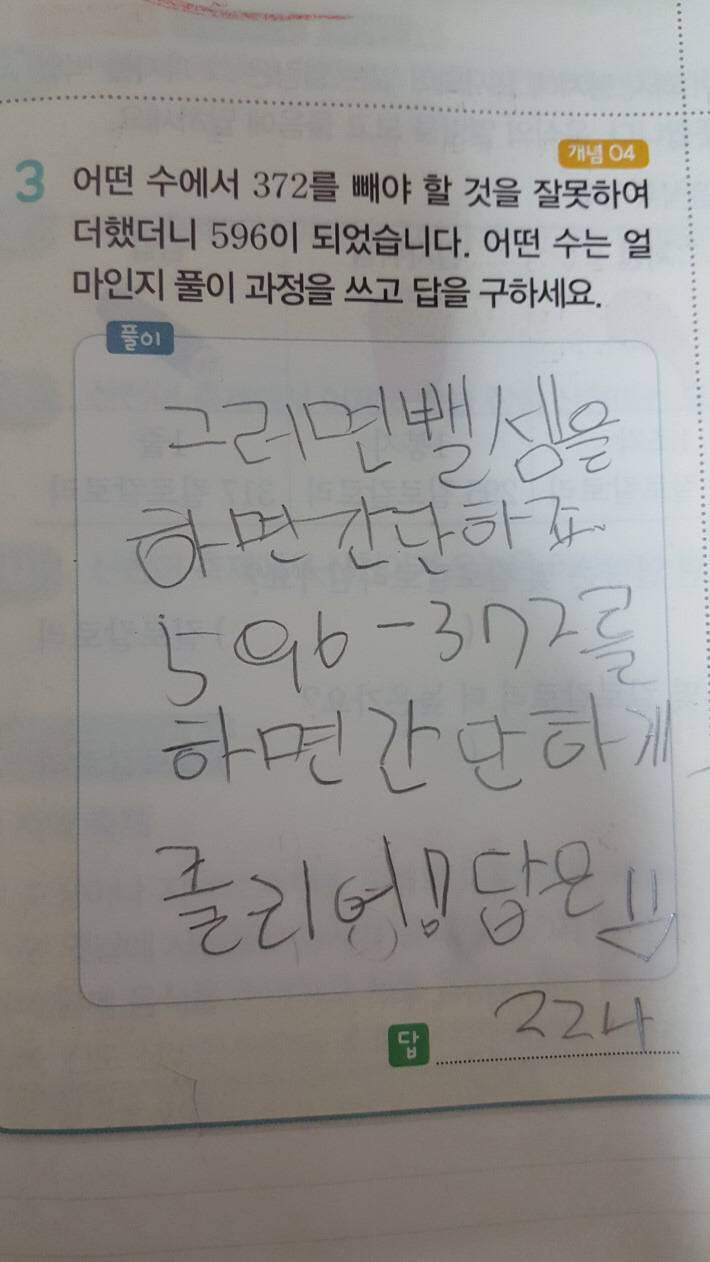 개념 04
3 어떤 수에서 372를 빼야 할 것을 잘못하여
더했더니 596이 되었습니다. 어떤 수는 얼
마인지 풀이 과정을 쓰고 답을 구하세요.
풀이
그러면 뺄셈을
하면 간단하죠.
596-372를
하면 간단하게
풀리어! 답은
답 224